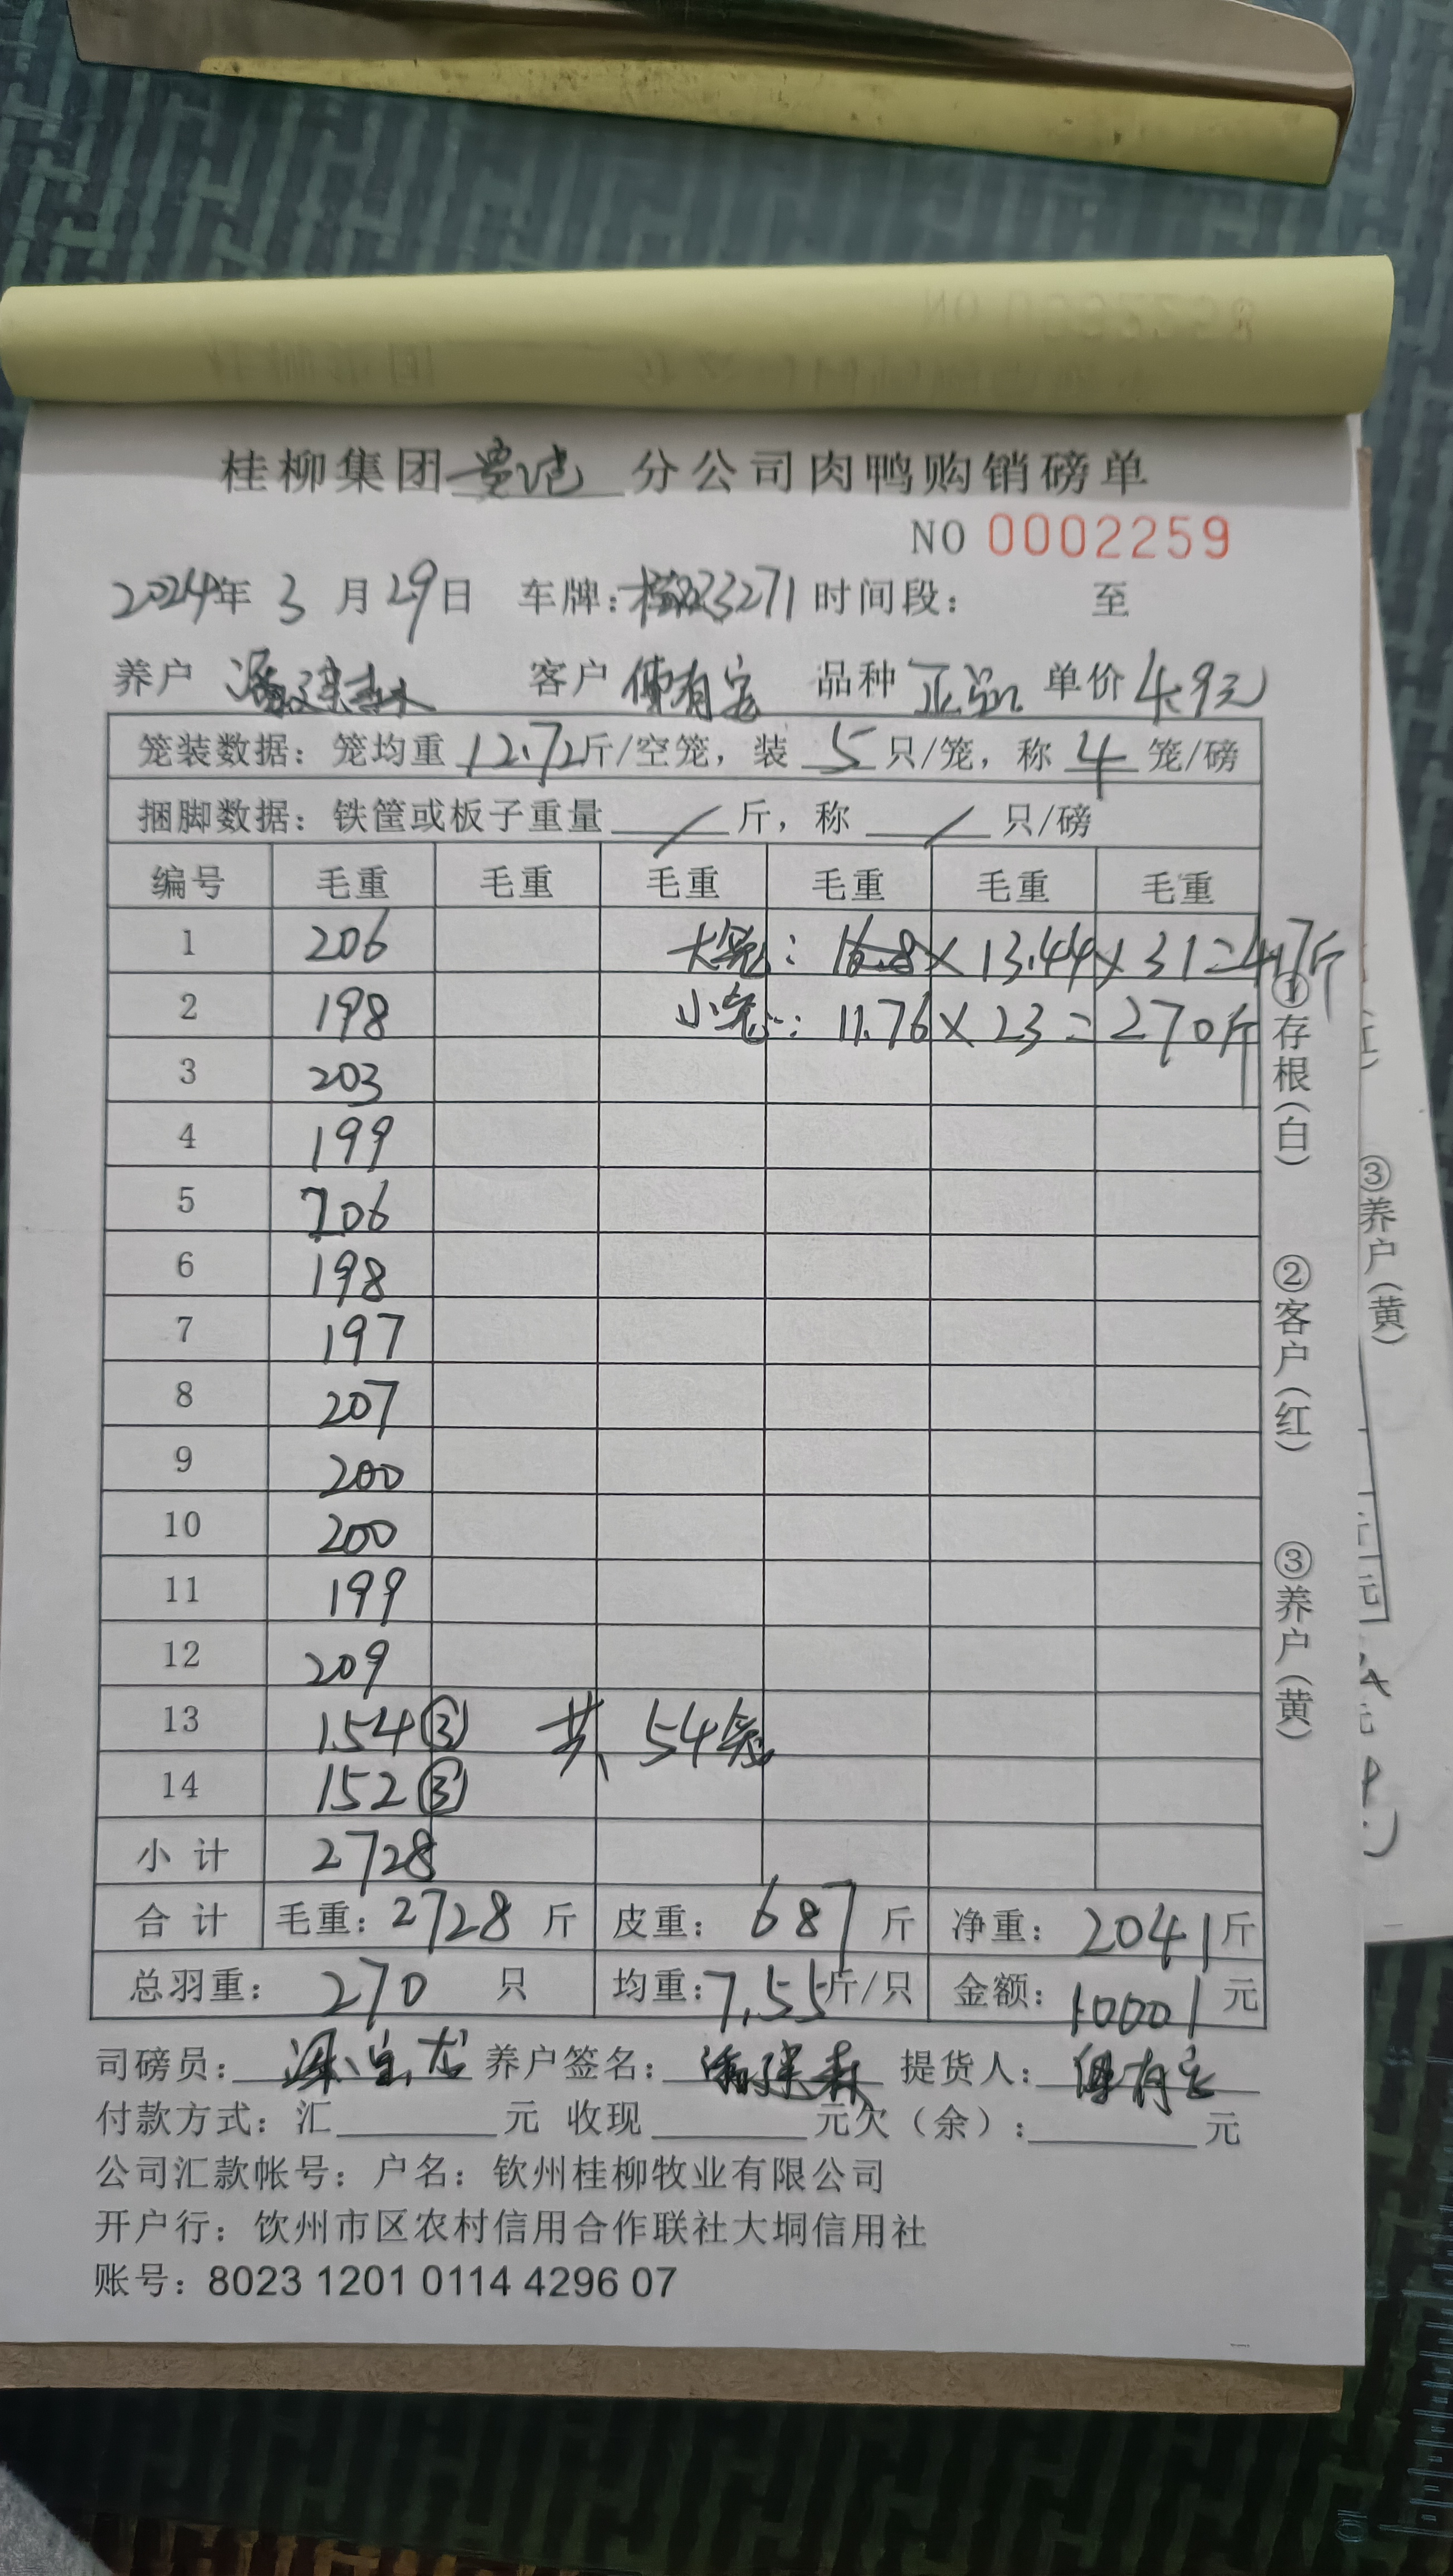 桂柳集团 分公司肉鸭购销磅单
NO 0002259
2024年 3 月 29日 车牌: 23271 时间段: 至
养户 客户 有 品种 正品 单价 4.9元
笼装数据: 笼均重 12.72斤/空笼, 装 5 只/笼, 称 4 笼/磅
捆脚数据: 铁筐或板子重量 / 斤, 称 / 只/磅
编号 毛重 毛重 毛重 毛重 毛重 毛重
1 206 大笼: 13.44 x 31 = 417斤
2 198 小笼: 11.76 x 23 = 270斤
3 203
4 199
5 206
6 198
7 197
8 207
9 200
10 200
11 199
12 209
13 154 ③ 共 54笼
14 152 ③
小计 2728
合计 毛重: 2728 斤 皮重: 687 斤 净重: 2041斤
总羽重: 270 只 均重: 7.55斤/只 金额: 10001 元
司磅员: 养户签名: 提货人:
付款方式: 汇 元 收现 元欠(余): 元
公司汇款帐号: 户名: 钦州桂柳牧业有限公司
开户行: 饮州市区农村信用合作联社大垌信用社
账号: 8023 1201 0114 4296 07
①存根(白)
②客户(红)
③养户(黄)
③养户(黄)